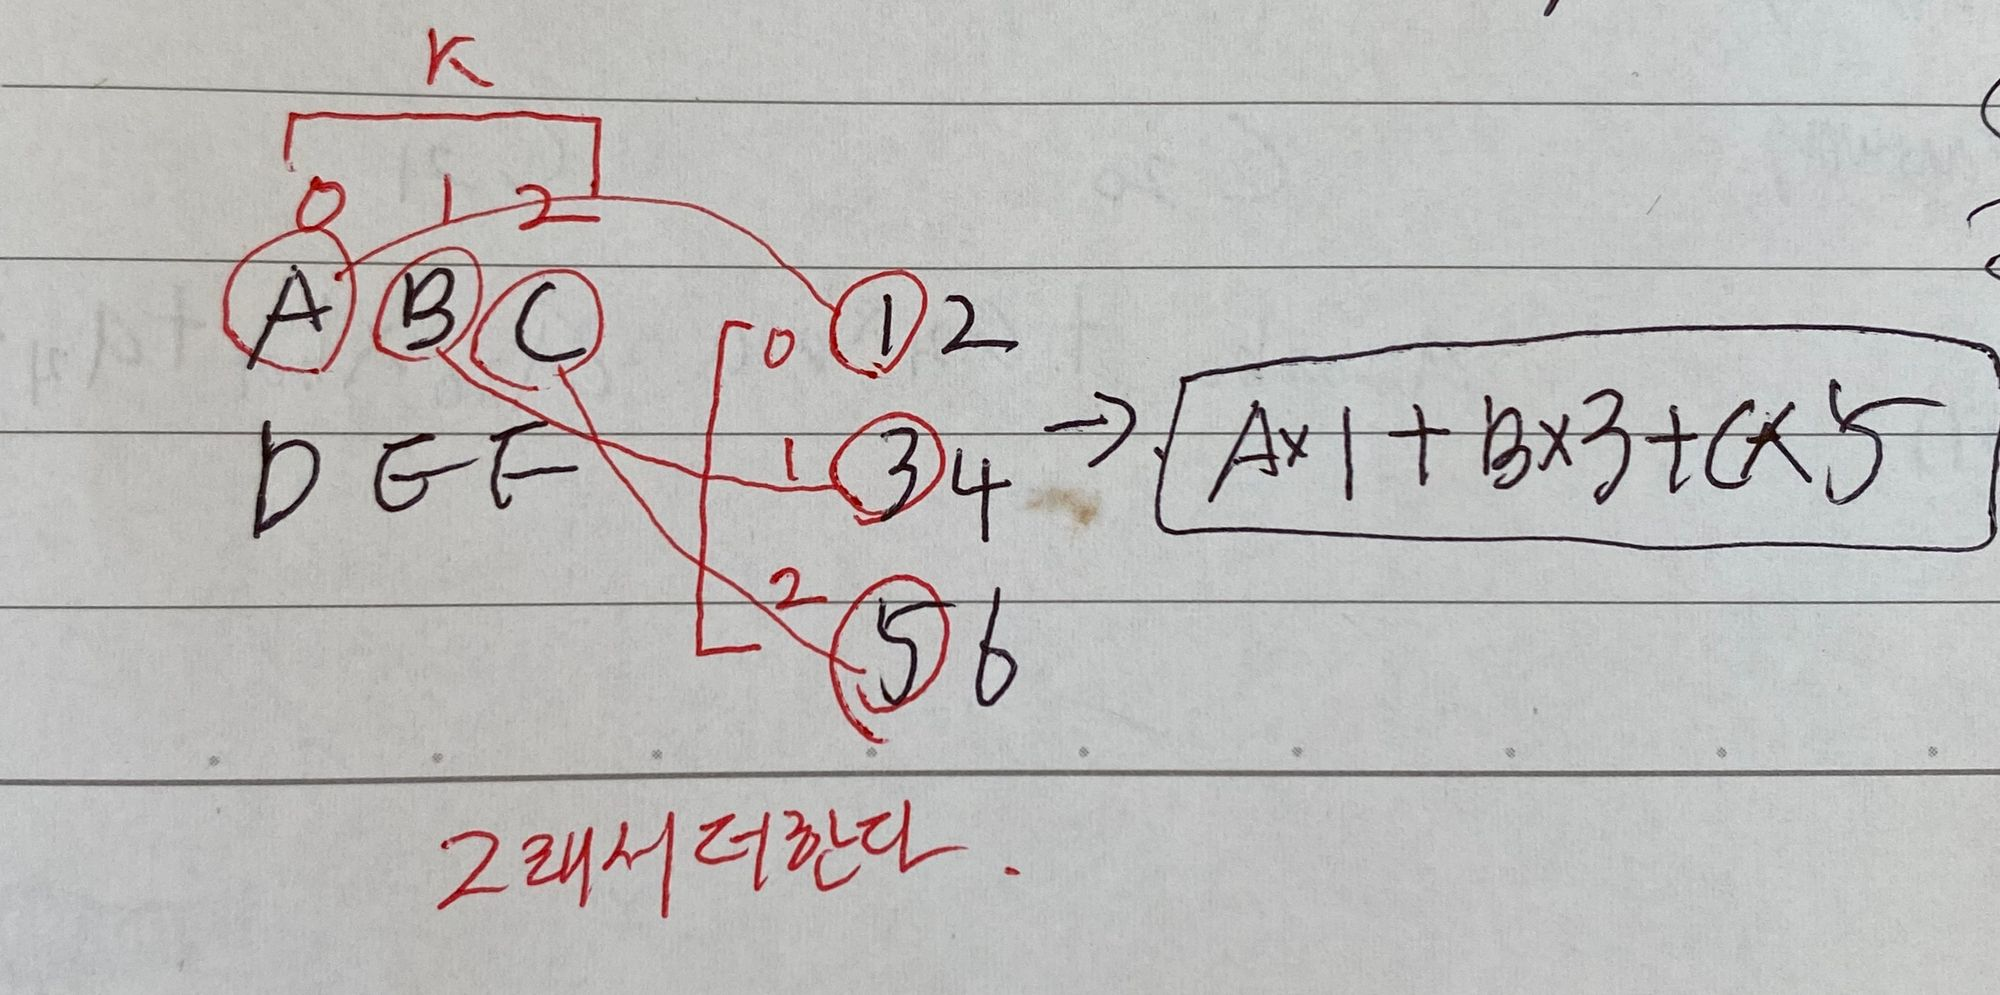 K
0 1 2
A B C 0 1 2
D E F 1 3 4 → A×1+B×3+C×5
2 5 6
그래서 더한다.